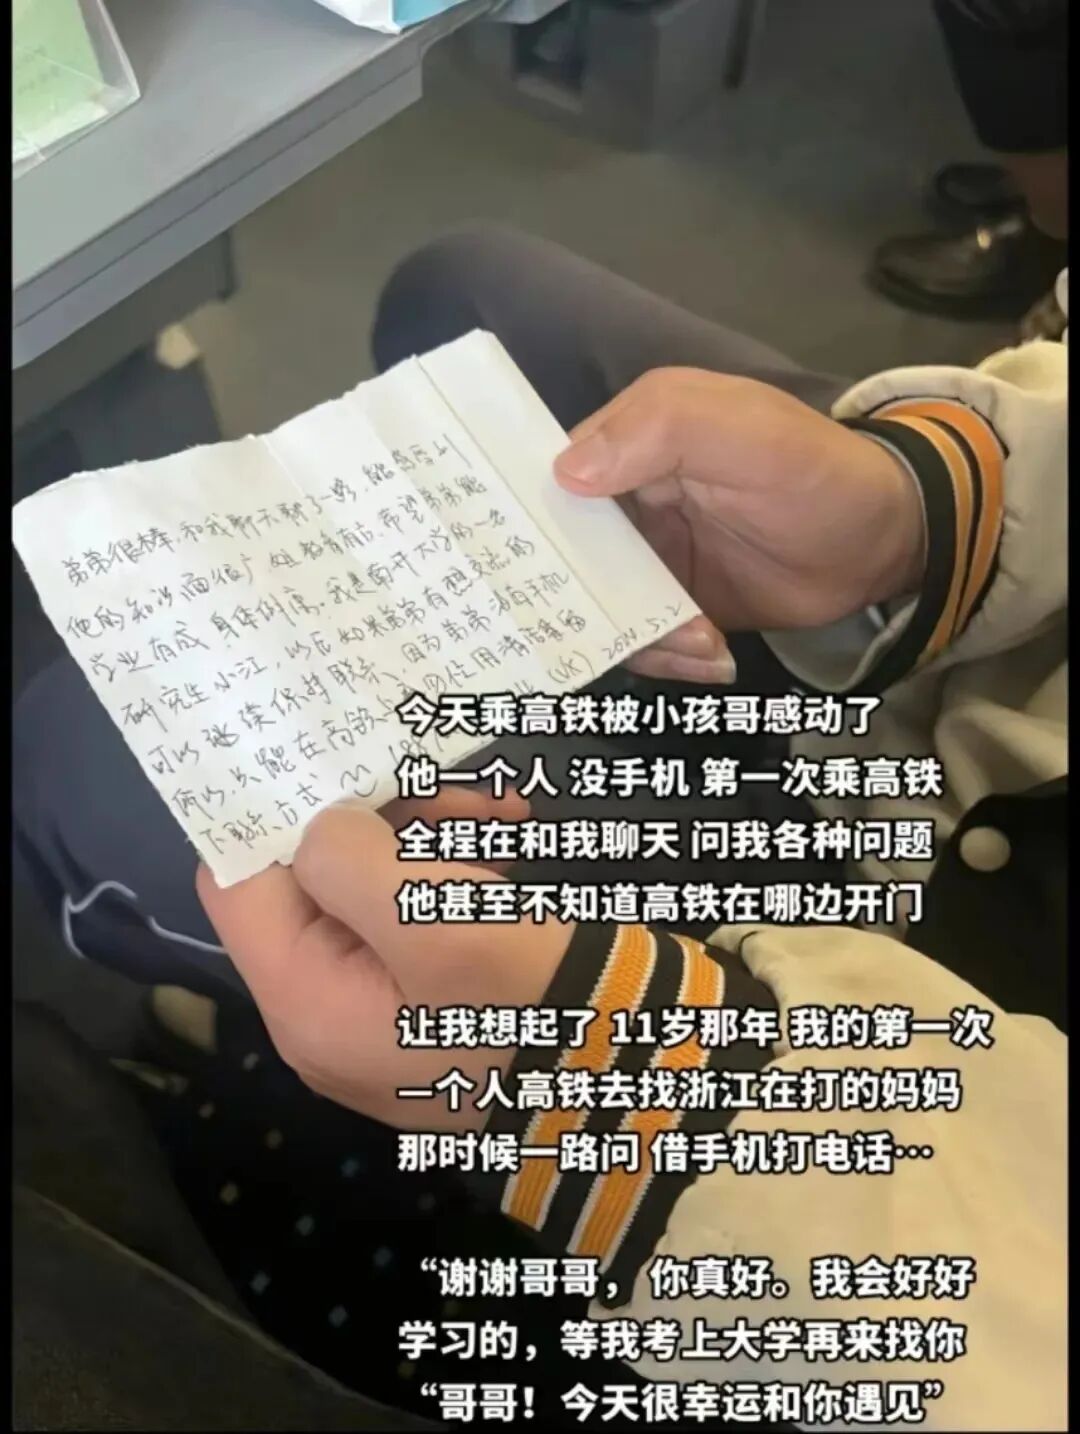 弟弟很棒,和我聊天聊了一路,能感受到
他的知识面很广,姐教育有方.希望弟弟能
学业有成,身体倒高.我是南开大学的一名
研究生小江,以后如果弟弟有想交流的
可以继续保持联系、因为弟弟没有手机
所以,只能在高铁上
下联系方式~ (VX) 2024.5.2
今天乘高铁被小孩哥感动了
他一个人 没手机 第一次乘高铁
全程在和我聊天 问我各种问题
他甚至不知道高铁在哪边开门
让我想起了 11岁那年 我的第一次
一个人高铁去找浙江在打的妈妈
那时候一路问 借手机打电话…
“谢谢哥哥，你真好。我会好好
学习的，等我考上大学再来找你
“哥哥！今天很幸运和你遇见”